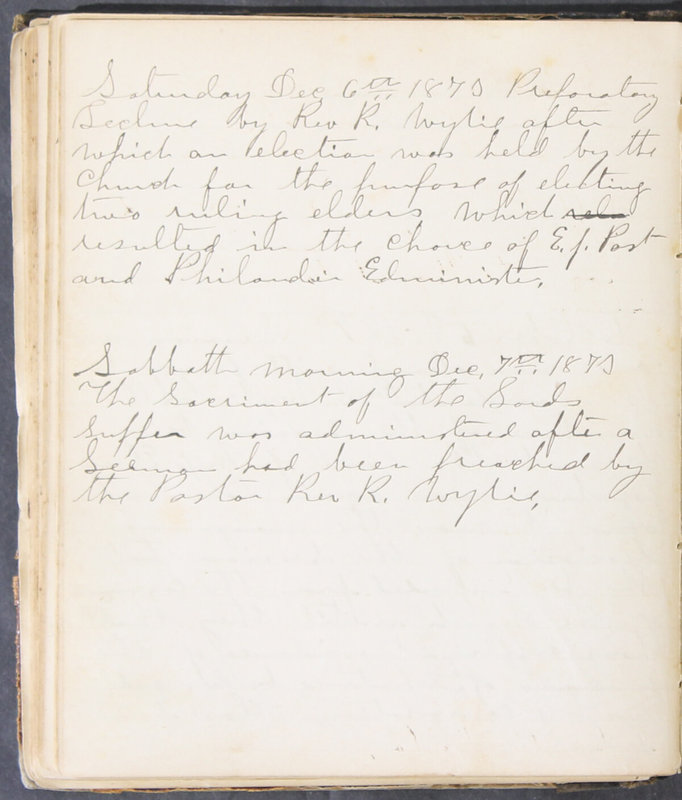 Saturday Dec 6th 1873 Preforatory
Lecture by Rev R. Wylie after
which an election was held by the
Church for the purpose of electing
two ruling elders which
resulted in the choice of E. J. Post
and Philander Edminister,
Sabbath morning Dec, 7th 1873
The Sacriment of the Lords
Supper was administered after a
Sermon had been preached by
the Pastor Rev R. Wylie,